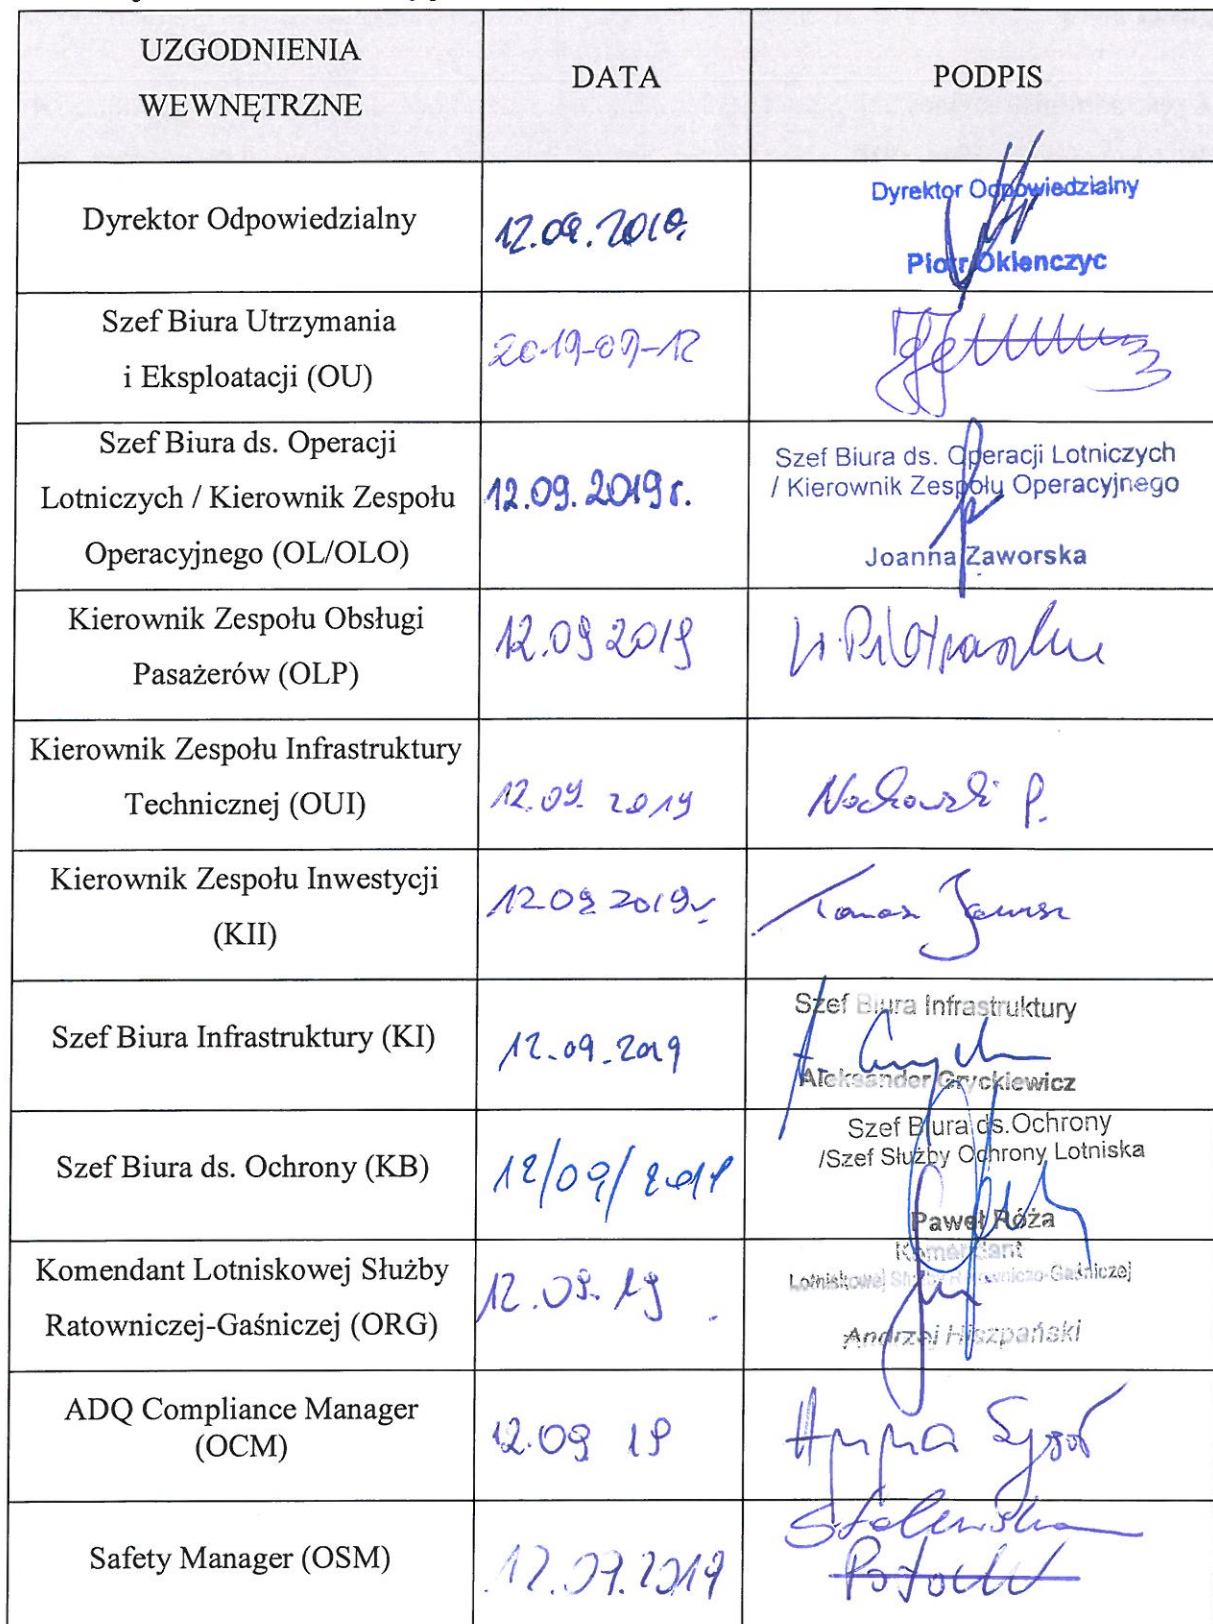 UZGODNIENIA
WEWNĘTRZNE
DATA
PODPIS
Dyrektor Odpowiedzialny
12.09.2019.
Dyrektor Odpowiedzialny
Piotr Okienczyc
Szef Biura Utrzymania
i Eksploatacji (OU)
2019-09-12
Szef Biura ds. Operacji
Lotniczych / Kierownik Zespołu
Operacyjnego (OL/OLO)
12.09.2019r.
Szef Biura ds. Operacji Lotniczych
/ Kierownik Zespołu Operacyjnego
Joanna Zaworska
Kierownik Zespołu Obsługi
Pasażerów (OLP)
12.09 2019
Kierownik Zespołu Infrastruktury
Technicznej (OUI)
12.09. 2019
Nockowski P.
Kierownik Zespołu Inwestycji
(KII)
12.09 2019r
Tomasz
Szef Biura Infrastruktury (KI)
12.09.2019
Szef Biura Infrastruktury
Aleksander Gryckiewicz
Szef Biura ds. Ochrony (KB)
12/09/2019
Szef Biura ds.Ochrony
/Szef Służby Ochrony Lotniska
Paweł Róża
Komendant Lotniskowej Służby
Ratowniczej-Gaśniczej (ORG)
12.09.19
Komendant
Lotniskowej Służby Ratowniczo-Gaśniczej
Andrzej Hiszpański
ADQ Compliance Manager
(OCM)
12.09 19
Anna
Safety Manager (OSM)
12.09.2019